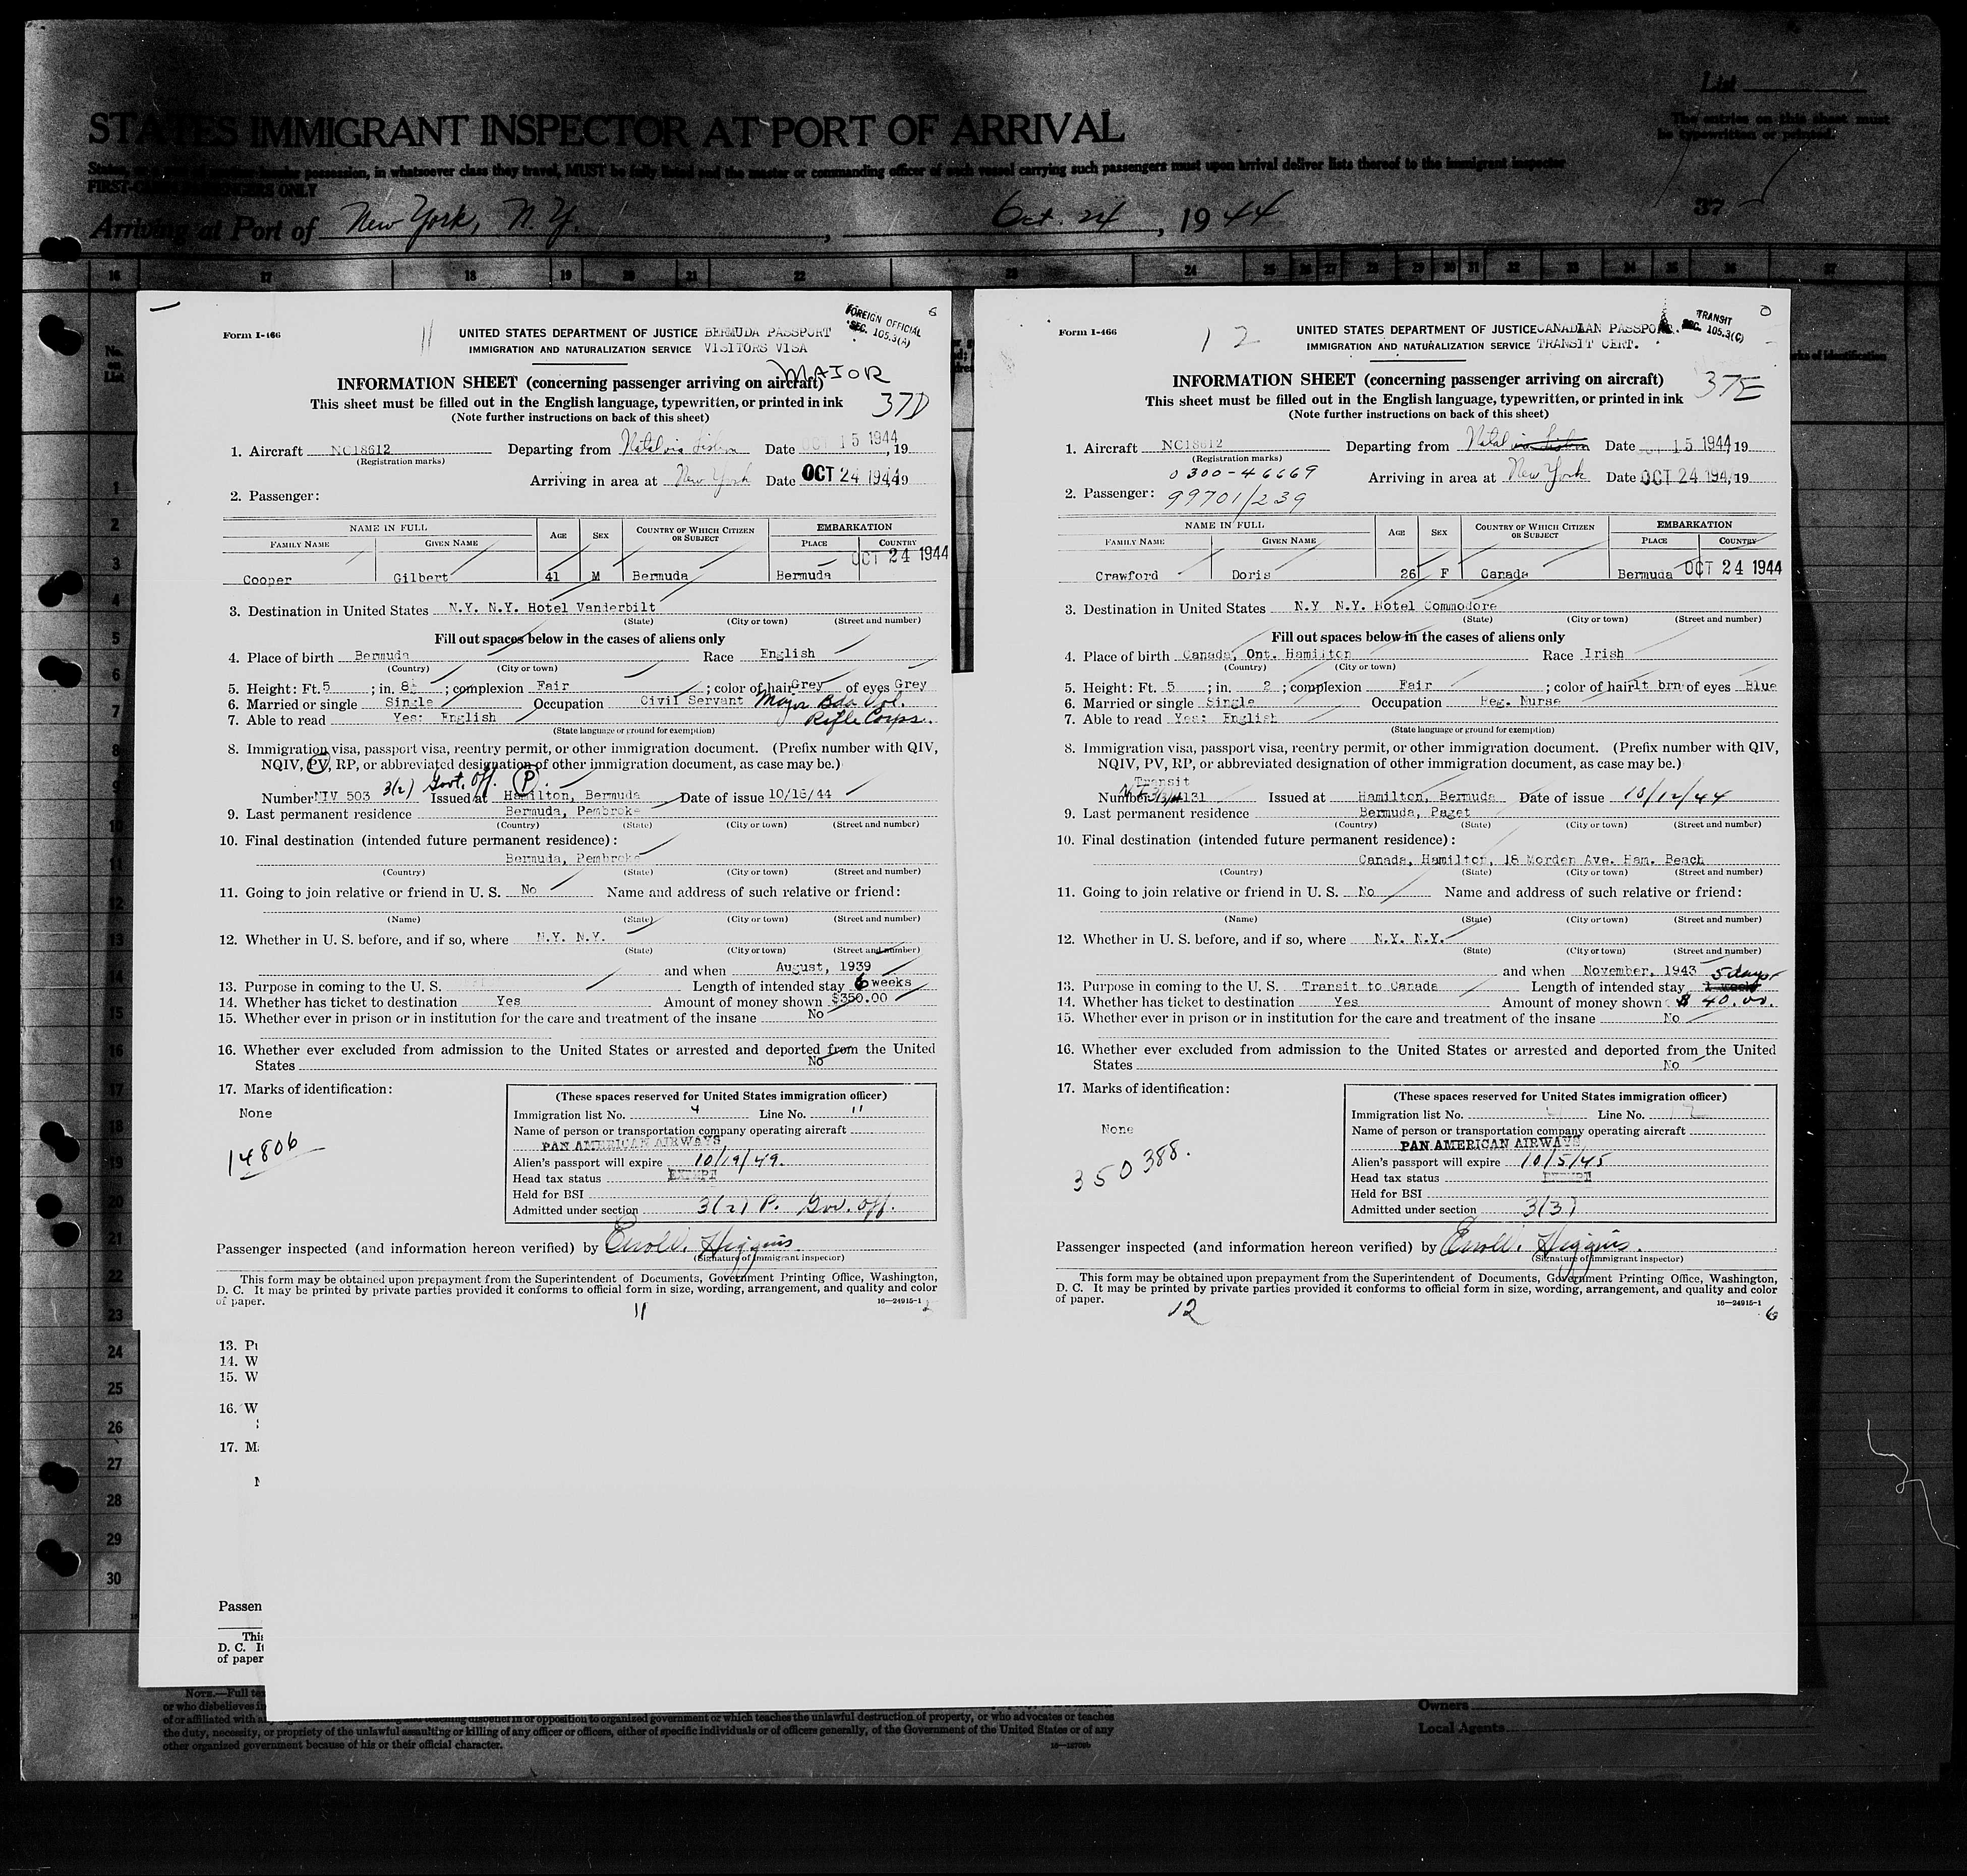 List
STATES IMMIGRANT INSPECTOR AT PORT OF ARRIVAL
The entries on this sheet must
be typewritten or printed.
possession, in whatsoever class they travel, MUST be fully listed and the master or commanding officer of each vessel carrying such passengers must upon arrival deliver lists thereof to the immigrant inspector
Arriving at Port of New York, N. Y., Oct. 24, 1944
37
16 17 18 19 20 21 22 23 24 25 26 27 28 29 30 31 32 33 34 35 36 37
No.
on
List
1
2
3
4
5
6
7
8
9
10
11
12
13
14
15
16
17
18
19
20
21
22
23
24
25
26
27
28
29
30
FOREIGN OFFICIAL
SEC. 105.3(A)
6
Form I-466
11
UNITED STATES DEPARTMENT OF JUSTICE BERMUDA PASSPORT
IMMIGRATION AND NATURALIZATION SERVICE VISITORS VISA
MAJOR
INFORMATION SHEET (concerning passenger arriving on aircraft)
This sheet must be filled out in the English language, typewritten, or printed in ink
37D
(Note further instructions on back of this sheet)
1. Aircraft NC18612 Departing from Natal via Lisbon Date OCT 15 1944, 19
(Registration marks)
Arriving in area at New York Date OCT 24 1944, 19
2. Passenger:
NAME IN FULL AGE SEX COUNTRY OF WHICH CITIZEN OR SUBJECT EMBARKATION
FAMILY NAME GIVEN NAME PLACE COUNTRY
OCT 24 1944
Cooper Gilbert 41 M Bermuda Bermuda
3. Destination in United States N.Y. N.Y. Hotel Vanderbilt
(State) (City or town) (Street and number)
Fill out spaces below in the cases of aliens only
4. Place of birth Bermuda Race English
(Country) (City or town)
5. Height: Ft. 5 ; in. 8½ ; complexion Fair ; color of hair Grey of eyes Grey
6. Married or single Single Occupation Civil Servant Major Bda Vol.
7. Able to read Yes: English Rifle Corps.
(State language or ground for exemption)
8. Immigration visa, passport visa, reentry permit, or other immigration document. (Prefix number with QIV,
NQIV, PV, RP, or abbreviated designation of other immigration document, as case may be.)
3(2) Govt. Off. P.
Number NIV 503 Issued at Hamilton, Bermuda Date of issue 10/18/44
9. Last permanent residence Bermuda, Pembroke
(Country) (State) (City or town) (Street and number)
10. Final destination (intended future permanent residence):
Bermuda, Pembroke
(Country) (State) (City or town) (Street and number)
11. Going to join relative or friend in U. S. No Name and address of such relative or friend:
(Name) (State) (City or town) (Street and number)
12. Whether in U. S. before, and if so, where N.Y. N.Y.
(State) (City or town) (Street and number)
and when August, 1939
13. Purpose in coming to the U. S. Length of intended stay 6 weeks
14. Whether has ticket to destination Yes Amount of money shown $350.00
15. Whether ever in prison or in institution for the care and treatment of the insane No
16. Whether ever excluded from admission to the United States or arrested and deported from the United
States No
17. Marks of identification:
None
14806
(These spaces reserved for United States immigration officer)
Immigration list No. 4 Line No. 11
Name of person or transportation company operating aircraft
PAN AMERICAN AIRWAYS
Alien's passport will expire 10/19/49.
Head tax status EXEMPT
Held for BSI
Admitted under section 3(2) P. Gov. Off.
Passenger inspected (and information hereon verified) by Errol D. Higgins.
(Signature of immigrant inspector)
This form may be obtained upon prepayment from the Superintendent of Documents, Government Printing Office, Washington,
D. C. It may be printed by private parties provided it conforms to official form in size, wording, arrangement, and quality and color
of paper. 16—24915-1
11
TRANSIT
SEC. 105.3(C)
0
Form I-466
12
UNITED STATES DEPARTMENT OF JUSTICE CANADIAN PASSPORT.
IMMIGRATION AND NATURALIZATION SERVICE TRANSIT CERT.
INFORMATION SHEET (concerning passenger arriving on aircraft)
37E
This sheet must be filled out in the English language, typewritten, or printed in ink
(Note further instructions on back of this sheet)
1. Aircraft NC18612 Departing from Natal via Lisbon Date 15 1944, 19
(Registration marks)
0300-46669 Arriving in area at New York Date OCT 24 1944, 19
2. Passenger: 99701/239
NAME IN FULL AGE SEX COUNTRY OF WHICH CITIZEN OR SUBJECT EMBARKATION
FAMILY NAME GIVEN NAME PLACE COUNTRY
Crawford Doris 26 F Canada Bermuda OCT 24 1944
3. Destination in United States N.Y N.Y. Hotel Commodore
(State) (City or town) (Street and number)
Fill out spaces below in the cases of aliens only
4. Place of birth Canada, Ont. Hamilton Race Irish
(Country) (City or town)
5. Height: Ft. 5 ; in. 2 ; complexion Fair ; color of hair lt brn of eyes Blue
6. Married or single Single Occupation Reg. Nurse
7. Able to read Yes: English
(State language or ground for exemption)
8. Immigration visa, passport visa, reentry permit, or other immigration document. (Prefix number with QIV,
NQIV, PV, RP, or abbreviated designation of other immigration document, as case may be.)
Transit
Number 131 Issued at Hamilton, Bermuda Date of issue 10/12/44
9. Last permanent residence Bermuda, Paget
(Country) (State) (City or town) (Street and number)
10. Final destination (intended future permanent residence):
Canada, Hamilton, 18 Morden Ave. Ham. Beach
(Country) (State) (City or town) (Street and number)
11. Going to join relative or friend in U. S. No Name and address of such relative or friend:
(Name) (State) (City or town) (Street and number)
12. Whether in U. S. before, and if so, where N.Y. N.Y.
(State) (City or town) (Street and number)
and when November, 1943
5 days
13. Purpose in coming to the U. S. Transit to Canada Length of intended stay 1 week
14. Whether has ticket to destination Yes Amount of money shown $ 40.00.
15. Whether ever in prison or in institution for the care and treatment of the insane No
16. Whether ever excluded from admission to the United States or arrested and deported from the United
States No
17. Marks of identification:
None
350388.
(These spaces reserved for United States immigration officer)
Immigration list No. 4 Line No. 12
Name of person or transportation company operating aircraft
PAN AMERICAN AIRWAYS
Alien's passport will expire 10/5/45
Head tax status EXEMPT
Held for BSI
Admitted under section 3(3)
Passenger inspected (and information hereon verified) by Errol D. Higgins.
(Signature of immigrant inspector)
This form may be obtained upon prepayment from the Superintendent of Documents, Government Printing Office, Washington,
D. C. It may be printed by private parties provided it conforms to official form in size, wording, arrangement, and quality and color
of paper. 16—24915-1
12
6
13. Pu
14. W
15. W
16. W
17. M
Passen
This
D. C. It
of paper
NOTE.—Full te
or who disbelieves in
of or affiliated with
teaching disbelief in or opposition to organized government or which teaches the unlawful destruction of property, or who advocates or teaches
the duty, necessity, or propriety of the unlawful assaulting or killing of any officer or officers, either of specific individuals or of officers generally, of the Government of the United States or of any
other organized government because of his or their official character.
Owners
Local Agents